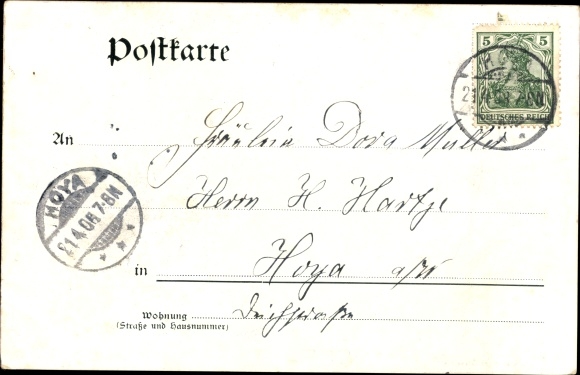 Postkarte
5 5
DEUTSCHES REICH
An Fräulein Dora Müller
Herrn H. Hartze
HOYA
21.4.06.7-8N
in Hoya a/W
Wohnung Deichstraße
(Straße und Hausnummer)